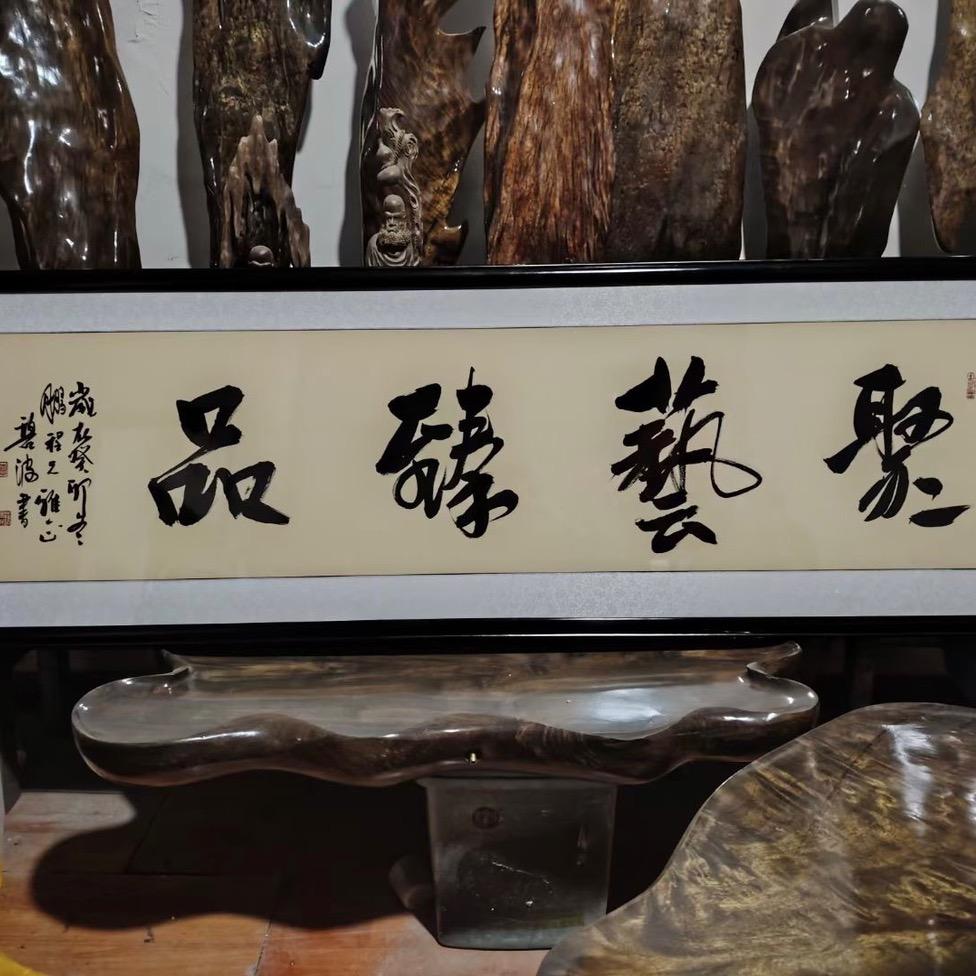 聚藝臻品
歲在癸卯冬
鵬程之雅正
碧波書